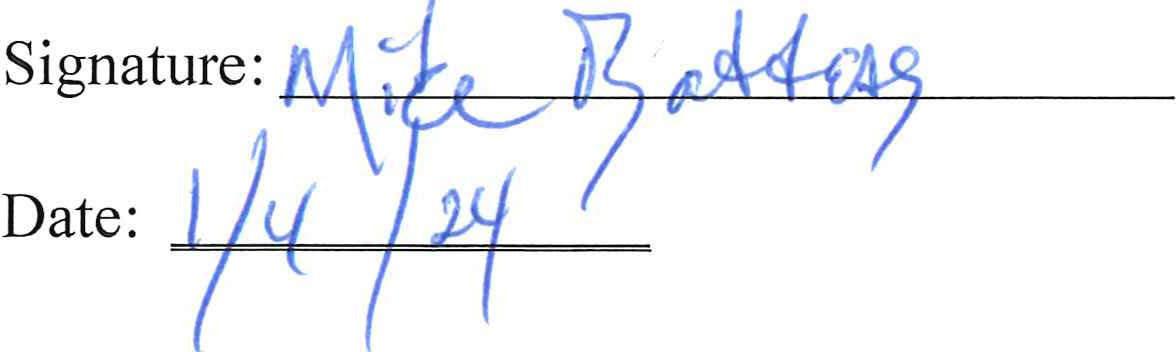 Signature: Mike Battag
Date: 1/4/24